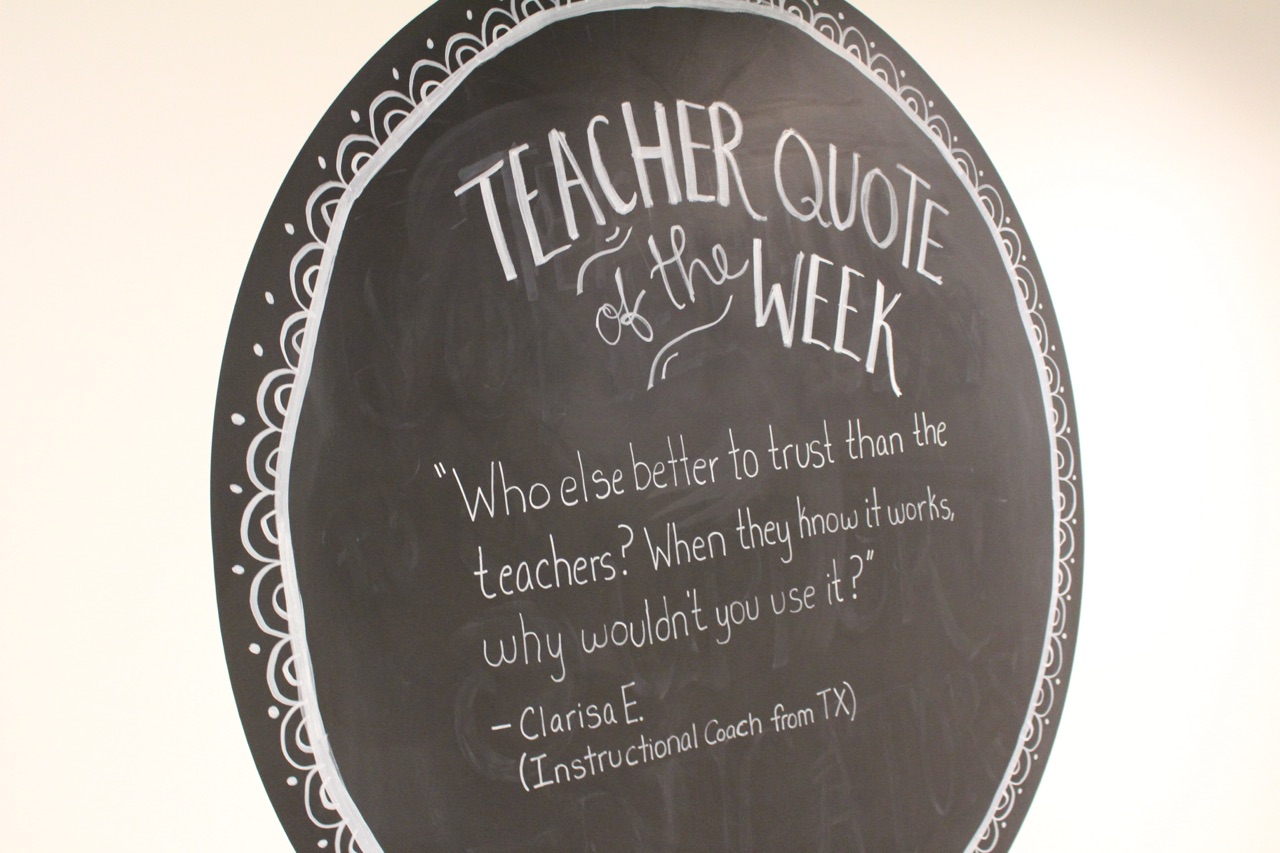 TEACHER QUOTE
of the WEEK
"Who else better to trust than the
teachers? When they know it works,
why wouldn't you use it?"
- Clarisa E.
(Instructional Coach from TX)